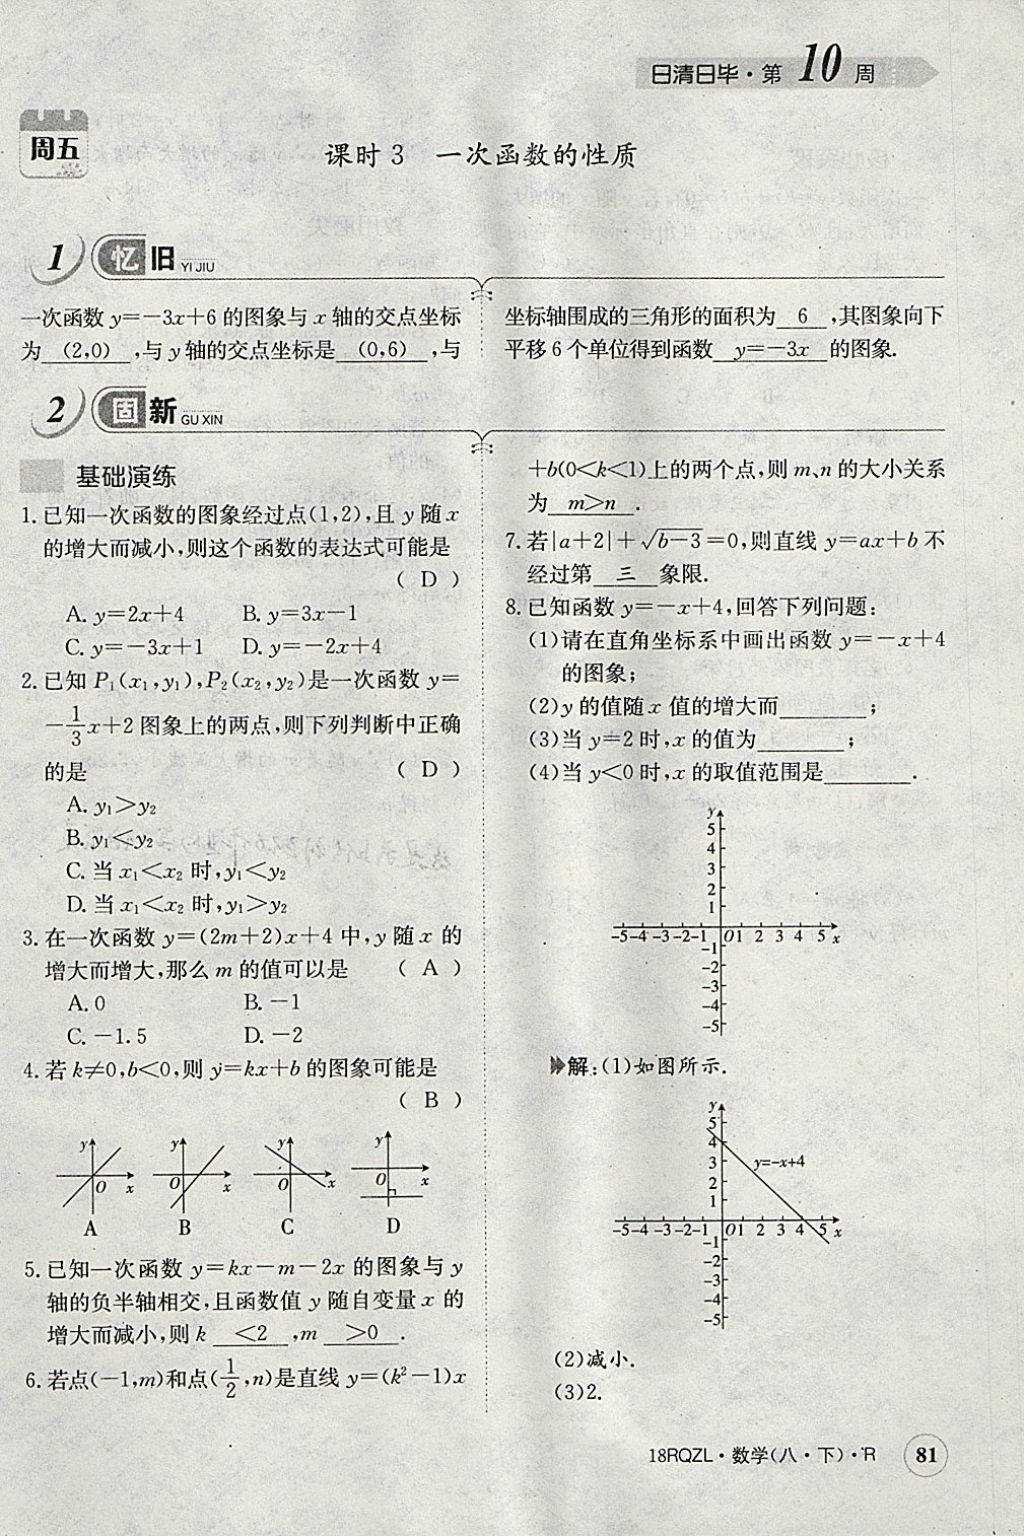 日清日毕·第10周
周五
课时3 一次函数的性质
1 忆旧 YI JIU
一次函数 y=-3x+6 的图象与 x 轴的交点坐标
为 (2,0) ,与 y 轴的交点坐标是 (0,6) ,与
坐标轴围成的三角形的面积为 6 ,其图象向下
平移 6 个单位得到函数 y=-3x 的图象.
2 固新 GU XIN
基础演练
1.已知一次函数的图象经过点(1,2),且 y 随 x
的增大而减小,则这个函数的表达式可能是
( D )
A. y=2x+4 B. y=3x-1
C. y=-3x+1 D. y=-2x+4
2.已知 P₁(x₁,y₁),P₂(x₂,y₂)是一次函数 y=
-1/3x+2 图象上的两点,则下列判断中正确
的是 ( D )
A. y₁>y₂
B. y₁<y₂
C. 当 x₁<x₂ 时,y₁<y₂
D. 当 x₁<x₂ 时,y₁>y₂
3.在一次函数 y=(2m+2)x+4 中,y 随 x 的
增大而增大,那么 m 的值可以是 ( A )
A. 0 B. -1
C. -1.5 D. -2
4.若 k≠0,b<0,则 y=kx+b 的图象可能是
( B )
y y y y
O x O x O x O x
A B C D
5.已知一次函数 y=kx-m-2x 的图象与 y
轴的负半轴相交,且函数值 y 随自变量 x 的
增大而减小,则 k <2 ,m >0 .
6.若点(-1,m)和点(1/2,n)是直线 y=(k²-1)x
+b(0<k<1)上的两个点,则 m、n 的大小关系
为 m>n .
7.若|a+2|+√(b-3)=0,则直线 y=ax+b 不
经过第 三 象限.
8.已知函数 y=-x+4,回答下列问题:
(1)请在直角坐标系中画出函数 y=-x+4
的图象;
(2)y 的值随 x 值的增大而________;
(3)当 y=2 时,x 的值为________;
(4)当 y<0 时,x 的取值范围是________.
y
5
4
3
2
1
-5-4-3-2-1 O1 2 3 4 5 x
-1
-2
-3
-4
-5
解:(1)如图所示.
y
5
4
3 y=-x+4
2
1
-5-4-3-2-1 O1 2 3 4 5 x
-1
-2
-3
-4
-5
(2)减小.
(3)2.
18RQZL·数学(八·下)·R 81